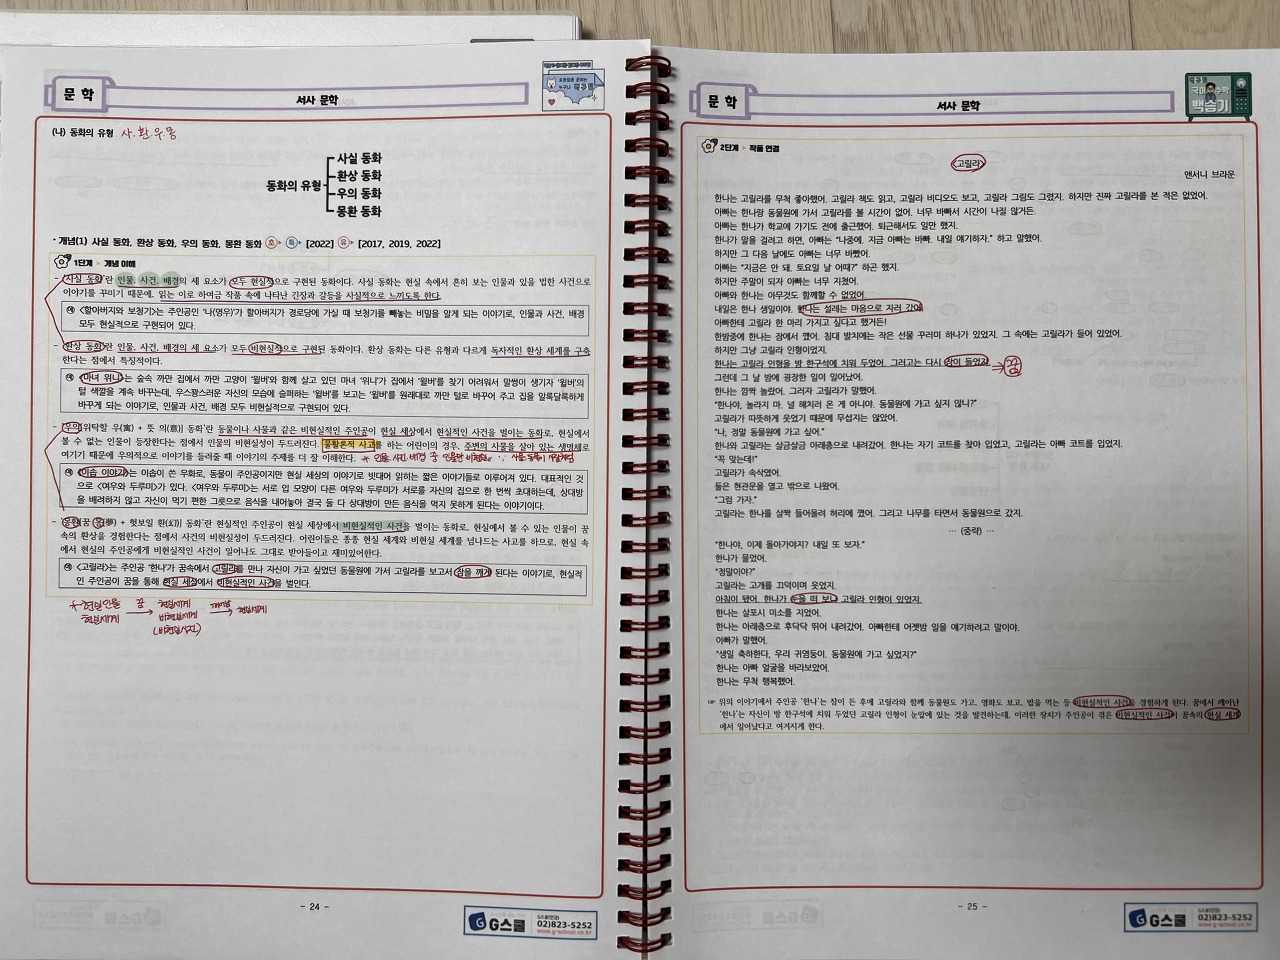 문 학
서사 문학
(나) 동화의 유형 사.환.우.몽
동화의 유형
사실 동화
환상 동화
우의 동화
몽환 동화
· 개념(1) 사실 동화, 환상 동화, 우의 동화, 몽환 동화 초 특 [2022] 유 [2017, 2019, 2022]
1단계 ▸ 개념 이해
- '사실 동화'란 인물, 사건, 배경의 세 요소가 모두 현실적으로 구현된 동화이다. 사실 동화는 현실 속에서 흔히 보는 인물과 있을 법한 사건으로
이야기를 꾸미기 때문에, 읽는 이로 하여금 작품 속에 나타난 긴장과 갈등을 사실적으로 느끼도록 한다.
예 <할아버지와 보청기>는 주인공인 '나(영우)'가 할아버지가 경로당에 가실 때 보청기를 빼놓는 비밀을 알게 되는 이야기로, 인물과 사건, 배경
모두 현실적으로 구현되어 있다.
- '환상 동화'란 인물, 사건, 배경의 세 요소가 모두 비현실적으로 구현된 동화이다. 환상 동화는 다른 유형과 다르게 독자적인 환상 세계를 구축
한다는 점에서 특징적이다.
예 <마녀 위니>는 숲속 까만 집에서 까만 고양이 '윌버'와 함께 살고 있던 마녀 '위니'가 집에서 '윌버'를 찾기 어려워서 말썽이 생기자 '윌버'의
털 색깔을 계속 바꾸는데, 우스꽝스러운 자신의 모습에 슬퍼하는 '윌버'를 보고는 '윌버'를 원래대로 까만 털로 바꾸어 주고 집을 알록달록하게
바꾸게 되는 이야기로, 인물과 사건, 배경 모두 비현실적으로 구현되어 있다.
- '우의(위탁할 우(寓) + 뜻 의(意)) 동화'란 동물이나 사물과 같은 비현실적인 주인공이 현실 세상에서 현실적인 사건을 벌이는 동화로, 현실에서
볼 수 없는 인물이 등장한다는 점에서 인물의 비현실성이 두드러진다. 물활론적 사고를 하는 어린이의 경우, 주변의 사물을 살아 있는 생명체로
여기기 때문에 우의적으로 이야기를 들려줄 때 이야기의 주제를 더 잘 이해한다. * 인물, 사건, 배경 중 인물만 비현실
예 <이솝 이야기>는 이솝이 쓴 우화로, 동물이 주인공이지만 현실 세상의 이야기들로 빗대어 읽히는 짧은 이야기들로 이루어져 있다. 대표적인 것
으로 <여우와 두루미>가 있다. <여우와 두루미>는 서로 입 모양이 다른 여우와 두루미가 서로를 자신의 집으로 한 번씩 초대하는데, 상대방
을 배려하지 않고 자신이 먹기 편한 그릇으로 음식을 내어놓아 결국 둘 다 상대방이 만든 음식을 먹지 못하게 된다는 이야기이다.
- '몽환(꿈 몽(夢) + 헛보일 환(幻)) 동화'란 현실적인 주인공이 현실 세상에서 비현실적인 사건을 벌이는 동화로, 현실에서 볼 수 있는 인물이 꿈
속의 환상을 경험한다는 점에서 사건의 비현실성이 두드러진다. 어린이들은 종종 현실 세계와 비현실 세계를 넘나드는 사고를 하므로, 현실 속
에서 현실의 주인공에게 비현실적인 사건이 일어나도 그대로 받아들이고 재미있어한다.
예 <고릴라>는 주인공 '한나'가 꿈속에서 고릴라를 만나 자신이 가고 싶었던 동물원에 가서 고릴라를 보고서 잠을 깨게 된다는 이야기로, 현실적
인 주인공이 꿈을 통해 현실 세상에서 비현실적인 사건을 벌인다.
* 현실인물 꿈 현실세계 깨어남 현실세계
현실세계 → 비현실세계 →
(비현실사건)
- 24 -
G스쿨 G스쿨(민경) 02)823-5252 www.g-school.co.kr
문 학
서사 문학
국어 수학
백승기
2단계 ▸ 작품 연결
<고릴라>
앤서니 브라운
한나는 고릴라를 무척 좋아했어. 고릴라 책도 읽고, 고릴라 비디오도 보고, 고릴라 그림도 그렸지. 하지만 진짜 고릴라를 본 적은 없었어.
아빠는 한나랑 동물원에 가서 고릴라를 볼 시간이 없어. 너무 바빠서 시간이 나질 않거든.
아빠는 한나가 학교에 가기도 전에 출근했어. 퇴근해서도 일만 했지.
한나가 말을 걸려고 하면, 아빠는 "나중에. 지금 아빠는 바빠. 내일 얘기하자." 하고 말했어.
하지만 그 다음 날에도 아빠는 너무 바빴어.
아빠는 "지금은 안 돼. 토요일 날 어때?" 하곤 했지.
하지만 주말이 되자 아빠는 너무 지쳤어.
아빠와 한나는 아무것도 함께할 수 없었어.
내일은 한나 생일이야. 한나는 설레는 마음으로 자러 갔어.
아빠한테 고릴라 한 마리 가지고 싶다고 했거든!
한밤중에 한나는 잠에서 깼어. 침대 발치에는 작은 선물 꾸러미 하나가 있었지. 그 속에는 고릴라가 들어 있었어.
하지만 그냥 고릴라 인형이었지.
한나는 고릴라 인형을 방 한구석에 치워 두었어. 그러고는 다시 잠이 들었지. → 꿈
그런데 그 날 밤에 굉장한 일이 일어났어.
한나는 깜짝 놀랐어. 그러자 고릴라가 말했어.
"한나야, 놀라지 마. 널 해치러 온 게 아니야. 동물원에 가고 싶지 않니?"
고릴라가 따뜻하게 웃었기 때문에 무섭지는 않았어.
"나, 정말 동물원에 가고 싶어."
한나와 고릴라는 살금살금 아래층으로 내려갔어. 한나는 자기 코트를 찾아 입었고, 고릴라는 아빠 코트를 입었지.
"꼭 맞는데!"
고릴라가 속삭였어.
둘은 현관문을 열고 밖으로 나왔어.
"그럼 가자."
고릴라는 한나를 살짝 들어올려 허리에 꼈어. 그리고 나무를 타면서 동물원으로 갔지.
··· (중략) ···
"한나야, 이제 돌아가야지? 내일 또 보자."
한나가 물었어.
"정말이야?"
고릴라는 고개를 끄덕이며 웃었지.
아침이 됐어. 한나가 눈을 떠 보니 고릴라 인형이 있었지.
한나는 살포시 미소를 지었어.
한나는 아래층으로 후닥닥 뛰어 내려갔어. 아빠한테 어젯밤 일을 얘기하려고 말이야.
아빠가 말했어.
"생일 축하한다, 우리 귀염둥이. 동물원에 가고 싶었지?"
한나는 아빠 얼굴을 바라보았어.
한나는 무척 행복했어.
☞ 위의 이야기에서 주인공 '한나'는 잠이 든 후에 고릴라와 함께 동물원도 가고, 영화도 보고, 밥을 먹는 등 비현실적인 사건을 경험하게 된다. 꿈에서 깨어난
'한나'는 자신이 방 한구석에 치워 두었던 고릴라 인형이 눈앞에 있는 것을 발견하는데, 이러한 장치가 주인공이 겪은 비현실적인 사건이 꿈속의 현실 세계
에서 일어났다고 여겨지게 한다.
- 25 -
G스쿨 G스쿨(민경) 02)823-5252 www.g-school.co.kr